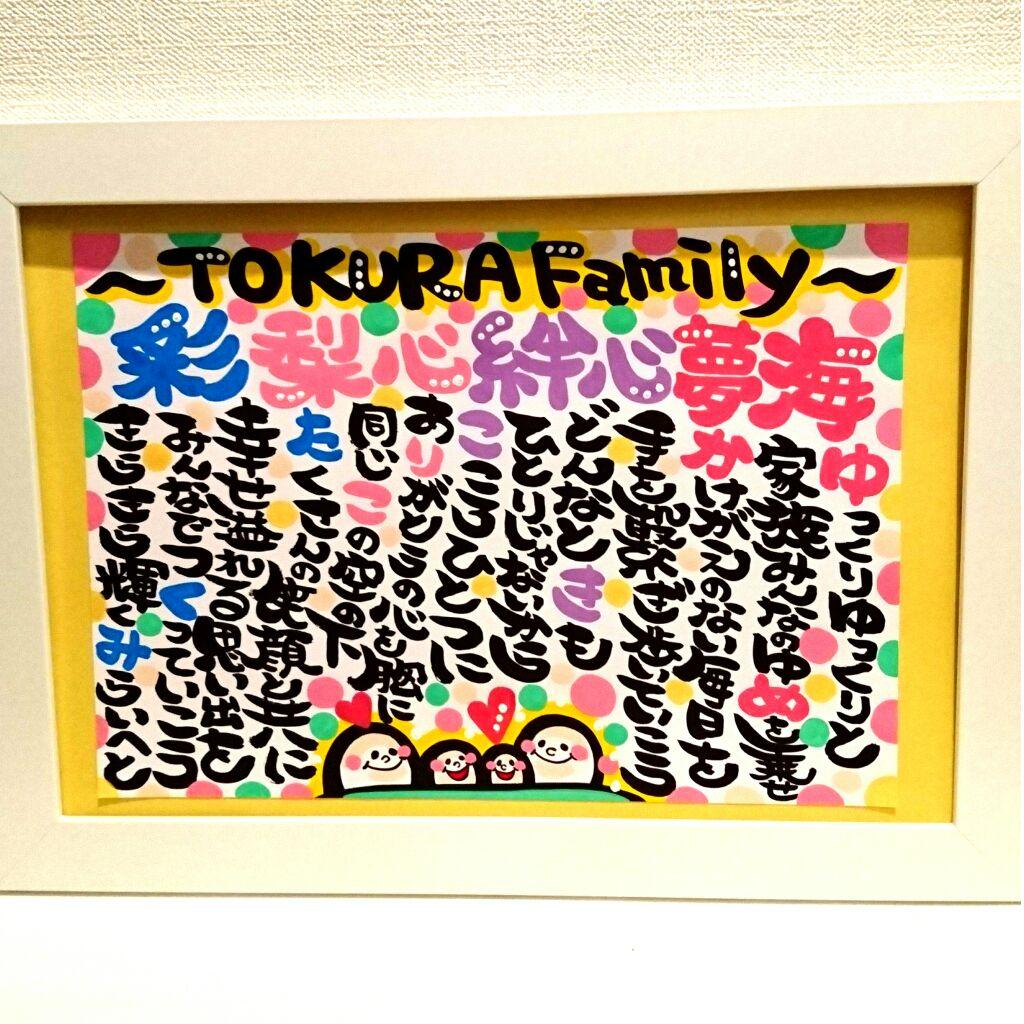 ～TOKURA Family～
彩 梨心 絆心 夢海
ゆっくりゆっくりと
家族みんなのゆめを乗せ
かけがえのない毎日を
手を繋ぎ歩いていこう
どんなときも
ひとりじゃないから
こころひとつに
ありがとうの心を胸に
同じこの空の下
たくさんの笑顔と共に
幸せ溢れる思い出を
みんなでつくっていこう
きらきら輝くみらいへと